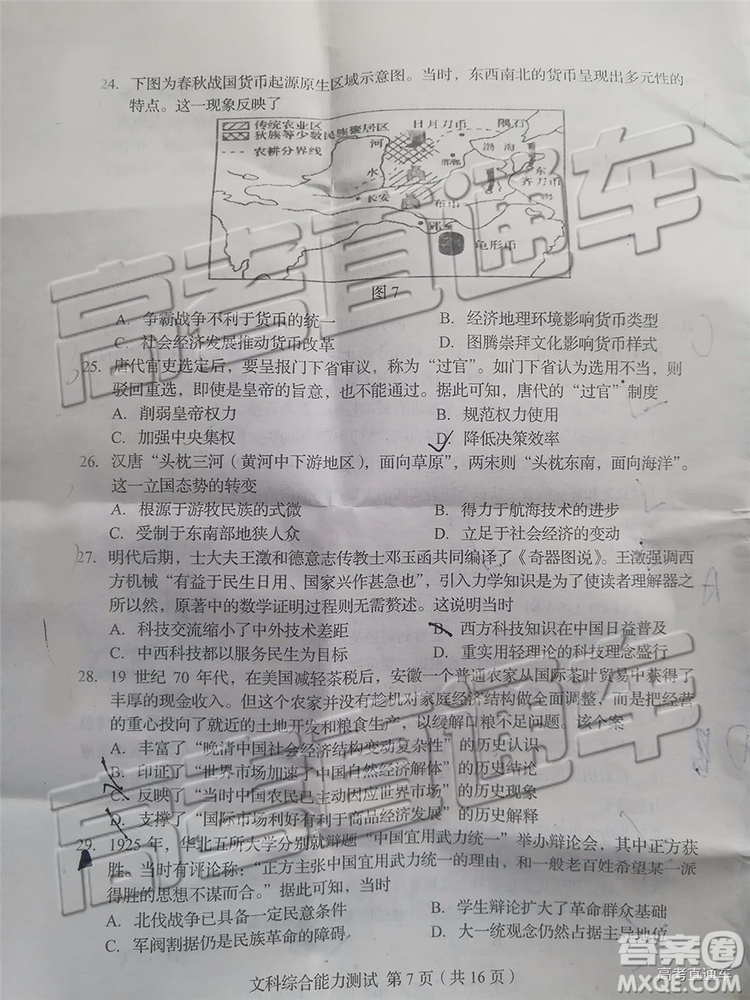 24. 下图为春秋战国货币起源原生区域示意图。当时，东西南北的货币呈现出多元性的
特点。这一现象反映了
传统农业区
狄族等少数民族聚居区
农耕分界线
日月刀币
隅石
渤
海
河
邯郸
水
长安
布币
东
海
齐刀币
龟形币
图7
A. 争霸战争不利于货币的统一
B. 经济地理环境影响货币类型
C. 社会经济发展推动货币改革
D. 图腾崇拜文化影响货币样式
25. 唐代官吏选定后，要呈报门下省审议，称为“过官”。如门下省认为选用不当，则
驳回重选，即使是皇帝的旨意，也不能通过。据此可知，唐代的“过官”制度
A. 削弱皇帝权力
B. 规范权力使用
C. 加强中央集权
D. 降低决策效率
26. 汉唐“头枕三河（黄河中下游地区），面向草原”，两宋则“头枕东南，面向海洋”。
这一立国态势的转变
A. 根源于游牧民族的式微
B. 得力于航海技术的进步
C. 受制于东南部地狭人众
D. 立足于社会经济的变动
27. 明代后期，士大夫王澂和德意志传教士邓玉函共同编译了《奇器图说》。王澂强调西
方机械“有益于民生日用、国家兴作甚急也”，引入力学知识是为了使读者理解器之
所以然，原著中的数学证明过程则无需赘述。这说明当时
A. 科技交流缩小了中外技术差距
B. 西方科技知识在中国日益普及
C. 中西科技都以服务民生为目的
D. 重实用轻理论的科技理念盛行
28. 19 世纪 70 年代，在美国减轻茶税后，安徽一个普通农家从国际茶叶贸易中获得了
丰厚的现金收入。但这个农家并没有趁机对家庭经济结构做全面调整，而是把经营
的重心投向了就近的土地开发和粮食生产，以缓解口粮不足问题。该个案
A. 丰富了“晚清中国社会经济结构变动复杂性”的历史认识
B. 印证了“世界市场加速了中国自然经济解体”的历史结论
C. 反映了“当时中国农民已主动因应世界市场”的历史现象
D. 支撑了“国际市场利好有利于商品经济发展”的历史解释
29. 1925 年，华北五所大学分别就辩题“中国宜用武力统一”举办辩论会，其中正方获
胜。当时有评论称：“正方主张中国宜用武力统一的理由，和一般老百姓希望某一派
得胜的思想不谋而合。”据此可知，当时
A. 北伐战争已具备一定民意条件
B. 学生辩论扩大了革命群众基础
C. 军阀割据仍是民族革命的障碍
D. 大一统观念仍占据主导地位
文科综合能力测试 第 7 页（共 16 页）
高考直通车
答案圈
MXQE.COM
高考直通车